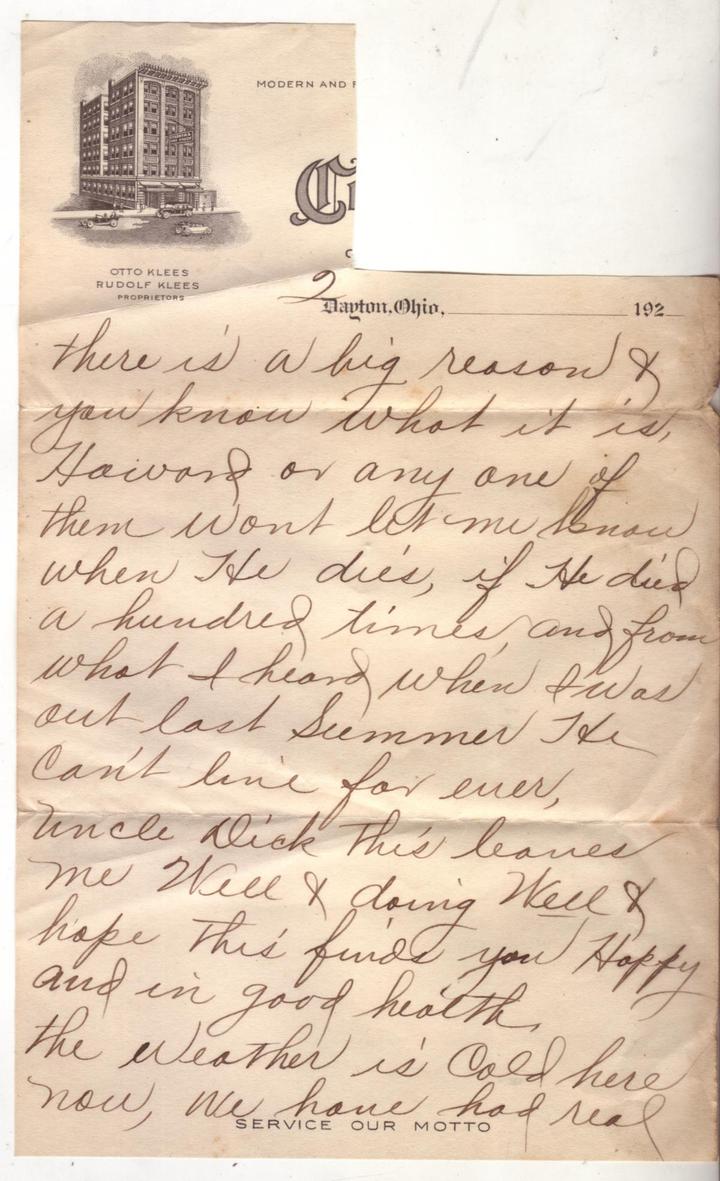 MODERN AND
OTTO KLEES
RUDOLF KLEES
PROPRIETORS
2
Dayton, Ohio, 192
there is a big reason &
you know what it is,
Howard or any one of
them wont let me know
when He dies, if He died
a hundred times, and from
what I heard when I was
out last Summer He
can't live for ever,
Uncle Dick this leaves
me Well & doing Well &
hope this finds you Happy
and in good health,
the Weather is Cold here
now, We have had real
SERVICE OUR MOTTO